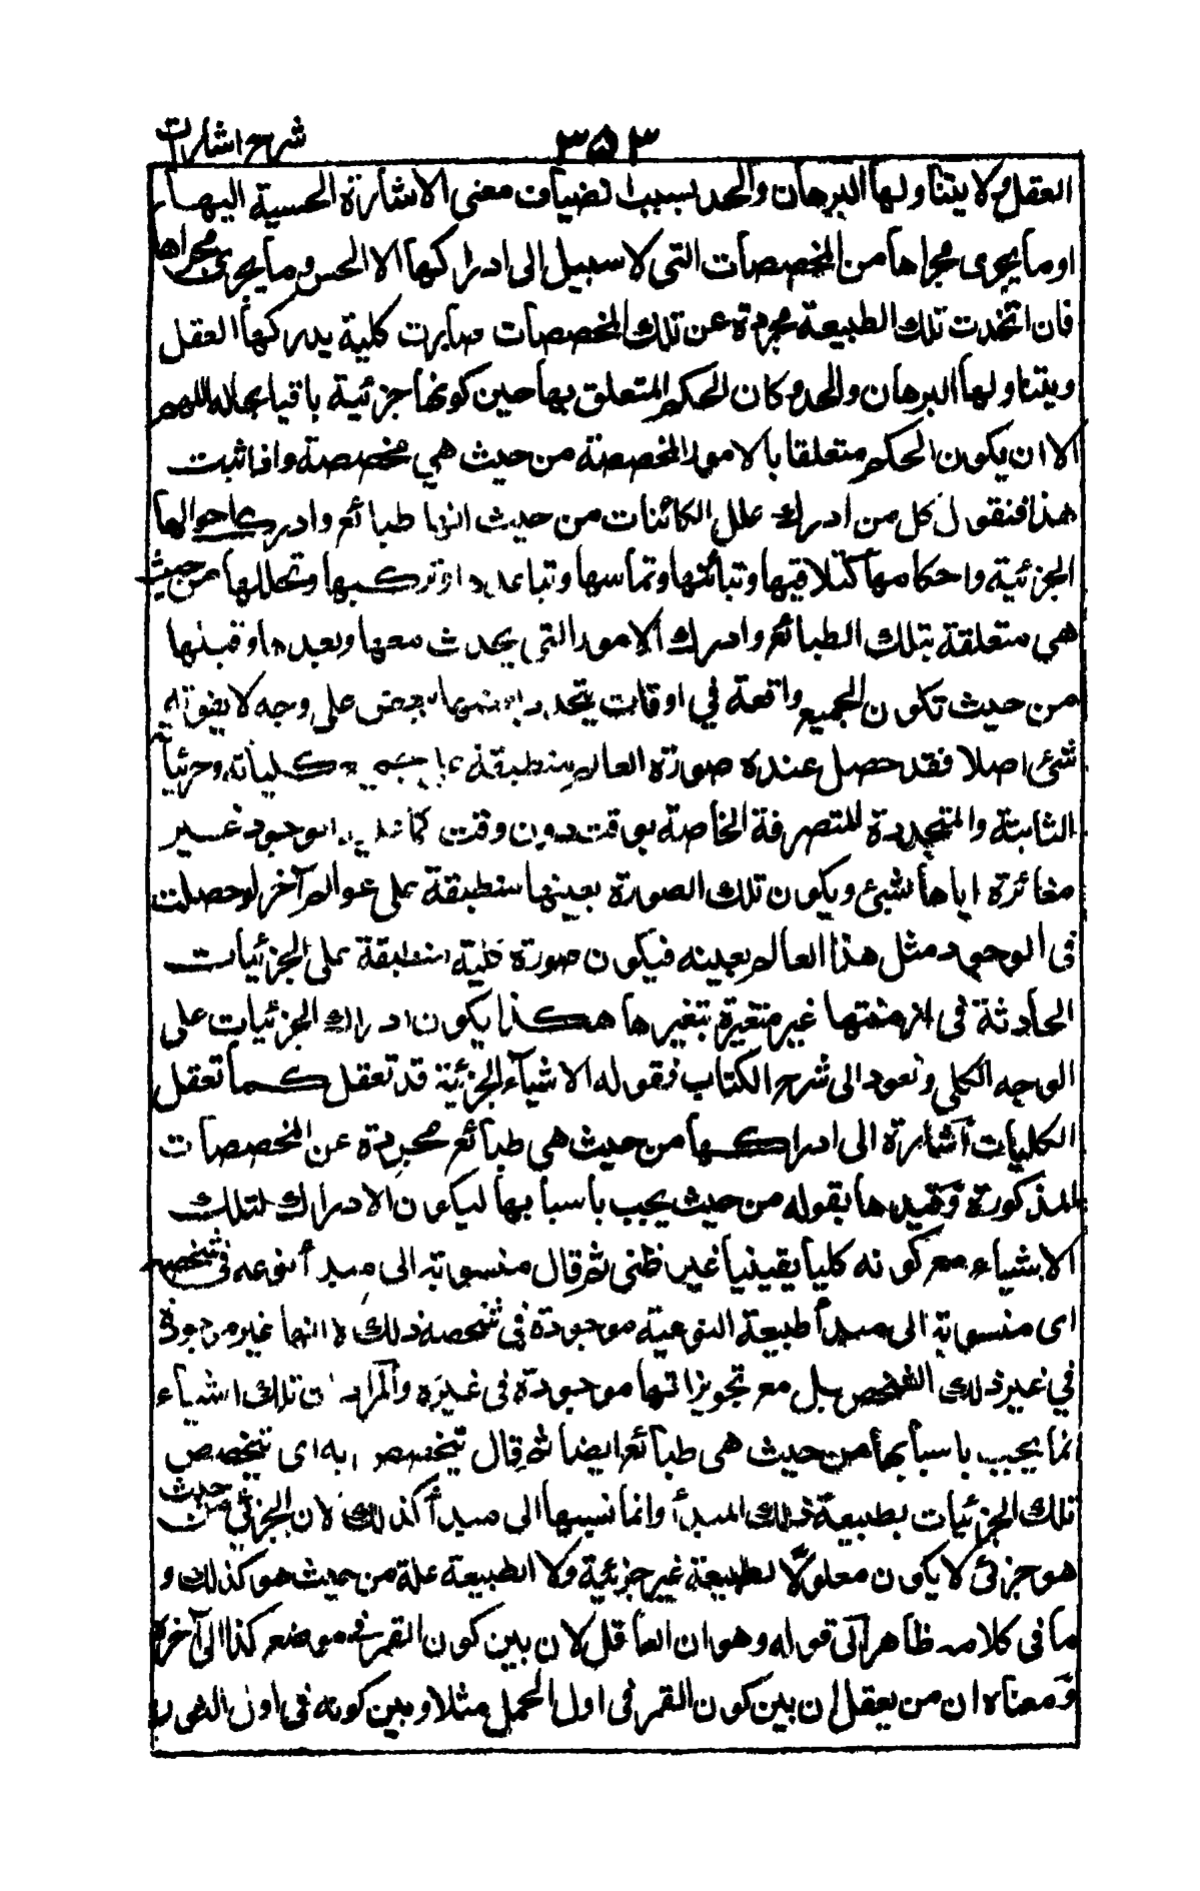 شرح اشارات
٣٥٣
العقل ولا يتناولها البرهان والحد بسبب انضياف معنى الاشارة الحسية اليها
او ما يجرى مجراها من المخصصات التى لا سبيل الى ادراكها الا الحس وما يجرى مجراها
فان اتخذت تلك الطبيعة مجردة عن تلك المخصصات صارت كلية يدركها العقل
ويتناولها البرهان والحد وكان الحكم المتعلق بها حين كونها جزئية باقيا بحاله اللهم
الا ان يكون الحكم متعلقا بالامور المخصصة من حيث هي مخصصة واذا ثبت
هذا فنقول كل من ادرك علل الكائنات من حيث انها طبائع وادرك احوالها
الجزئية واحكامها كتلاقيها وتبائنها وتماسها وتباعدها وتركبها وتحللها من حيث
هي متعلقة بتلك الطبائع وادرك الامور التي يحدث معها وبعدها وقبلها
من حيث تكون الجميع واقعة في اوقات يتحدد بعضها ببعض على وجه لا يفوته
شئ اصلا فقد حصل عنده صورة العالم منطبقة على جميع كلياته وجزئياته
الثابتة والمتجددة المتصرفة الخاصة بوقت دون وقت كما عليه الوجود غير
مغائرة اياها لشئ ويكون تلك الصورة بعينها منطبقة على عوالم آخر لو حصلت
فى الوجود مثل هذا العالم بعينه فيكون صورة كلية منطبقة على الجزئيات
الحادثة فى ازمنتها غير متغيرة بتغيرها هكذا يكون ادراك الجزئيات على
الوجه الكلي ونعود الى شرح الكتاب فقوله الاشيآء الجزئية قد تعقل كما تعقل
الكليات اشارة الى ادراكها من حيث هي طبائع مجردة عن المخصصات
المذكورة وقيدها بقوله من حيث يجب باسبابها ليكون الادراك لتلك
الاشياء مع كونه كليا يقينيا غير ظنى ثم قال منسوبة الى مبدأ نوعه فى شخصه
اى منسوبة الى مبدأ طبيعة النوعية موجودة فى شخصه ذلك لا انها غير موجودة
في غير ذلك الشخص بل مع تجويز انها موجودة فى غيره والمراد ان تلك الاشياء
انما يجب باسبابها من حيث هى طبائع ايضا ثم قال تتخصص به اى تتخصص
تلك الجزئيات بطبيعة ذلك المبدأ وانما نسبها الى مبدأ كذلك لان الجزئي من حيث
هو جزئى لا يكون معلولا لطبيعة غير جزئية ولا الطبيعة علة من حيث هو كذلك و
ما فى كلامه ظاهر الى قوله وهو ان العاقل لان بين كون القمر فى موضع كذا الى آخره
ومعناه ان من يعقل ان بين كون القمر فى اول الحمل مثلا وبين كونه فى اول الثور